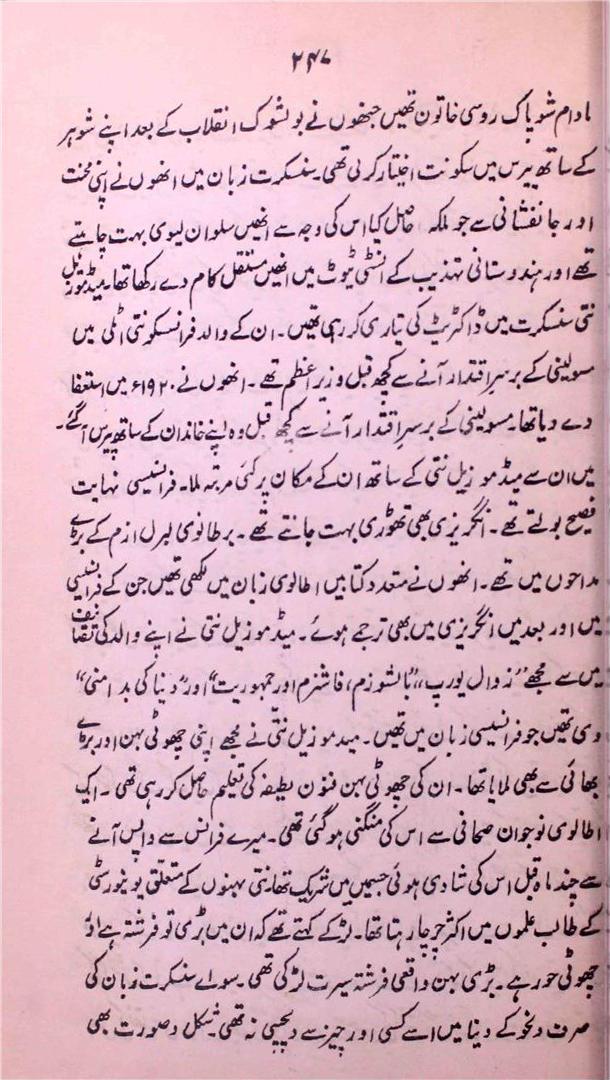 ۲۴۷
مادام شوپاک روسی خاتون تھیں جنھوں نے بولشوک انقلاب کے بعد اپنے شوہر
کے ساتھ پیرس میں سکونت اختیار کرلی تھی۔ سنسکرت زبان میں انھوں نے اپنی محنت
اور جانفشانی سے جو ملکہ حاصل کیا اس کی وجہ سے انھیں سلوان لیوی بہت چاہتے
تھے اور ہندوستانی تہذیب کے انسٹی ٹیوٹ میں انھیں مستقل کام دے رکھا تھا۔ میڈموزیل
نتی سنسکرت میں ڈاکٹریٹ کی تیاری کررہی تھیں۔ ان کے والد فرانسسکو نتی اٹلی میں
مسولینی کے برسرِ اقتدار آنے سے کچھ قبل وزیر اعظم تھے۔ انھوں نے ۱۹۲۰ء میں استعفا
دے دیا تھا۔ مسولینی کے برسرِ اقتدار آنے سے کچھ قبل وہ اپنے خاندان کے ساتھ پیرس آگئے۔
میں ان سے میڈموزیل نتی کے ساتھ ان کے مکان پر کئی مرتبہ ملا۔ فرانسیسی نہایت
فصیح بولتے تھے۔ انگریزی بھی تھوڑی بہت جانتے تھے۔ برطانوی لبرل ازم کے بڑے
مداحوں میں تھے۔ انھوں نے متعدد کتابیں اطالوی زبان میں لکھی تھیں جن کے فرانسیسی
میں اور بعد میں انگریزی میں بھی ترجمے ہوئے۔ میڈموزیل نتی نے اپنے والد کی تصانیف
میں سے مجھے "زوال یورپ"، "بالشوزم، فاشزم اور جمہوریت" اور "دنیا کی بدامنی"
دی تھیں جو فرانسیسی زبان میں تھیں۔ میڈموزیل نتی نے مجھے اپنی چھوٹی بہن اور بڑے
بھائی سے بھی ملایا تھا۔ ان کی چھوٹی بہن فنون لطیفہ کی تعلیم حاصل کررہی تھی۔ ایک
اطالوی نوجوان صحافی سے اس کی منگنی ہوگئی تھی۔ میرے فرانس سے واپس آنے
سے چند ماہ قبل اس کی شادی ہوئی جسمیں میں شریک تھا۔ نتی بہنوں کے متعلق یونیورسٹی
کے طالب علموں میں اکثر چرچا رہتا تھا۔ لڑکے کہتے تھے کہ ان میں بڑی تو فرشتہ ہے اور
چھوٹی حور ہے۔ بڑی بہن واقعی فرشتہ سیرت لڑکی تھی۔ سوائے سنسکرت زبان کی
صرف ونحو کے دنیا میں اسے کسی اور چیز سے دلچسپی نہ تھی۔ شکل و صورت بھی